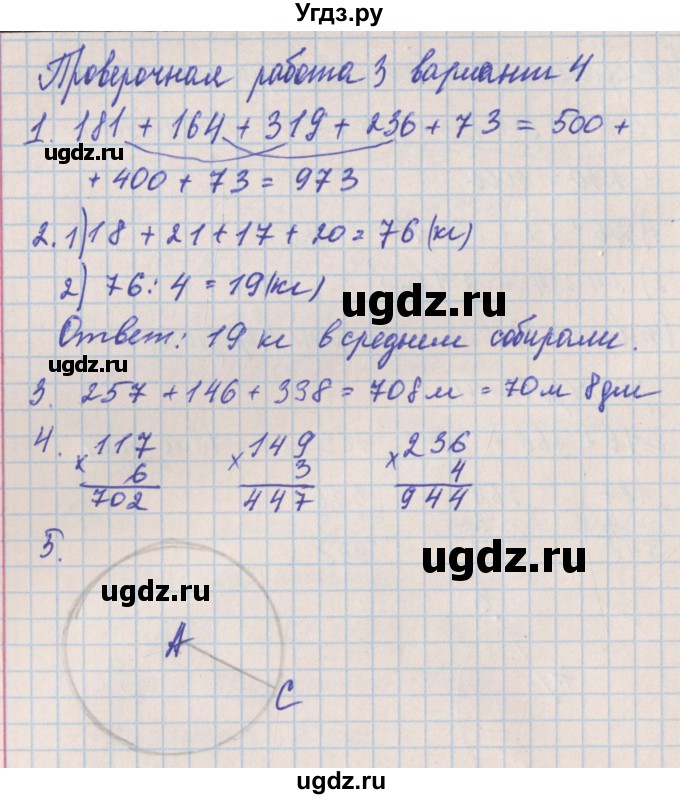 Угдз.ру
Проверочная работа 3 вариант 4
1. 181 + 164 + 319 + 236 + 73 = 500 +
ugdz.ru
+ 400 + 73 = 973
2. 1) 18 + 21 + 17 + 20 = 76 (кг)
2) 76 : 4 = 19 (кг)
ugdz.ru
Ответ: 19 кг в среднем собирали.
ugdz.ru
3. 257 + 146 + 338 = 708 м = 70 м 8 дм
4. × 117 × 149 × 236
6 3 4
702 447 944
5.
ugdz.ru
ugdz.ru
А
С
ugdz.ru